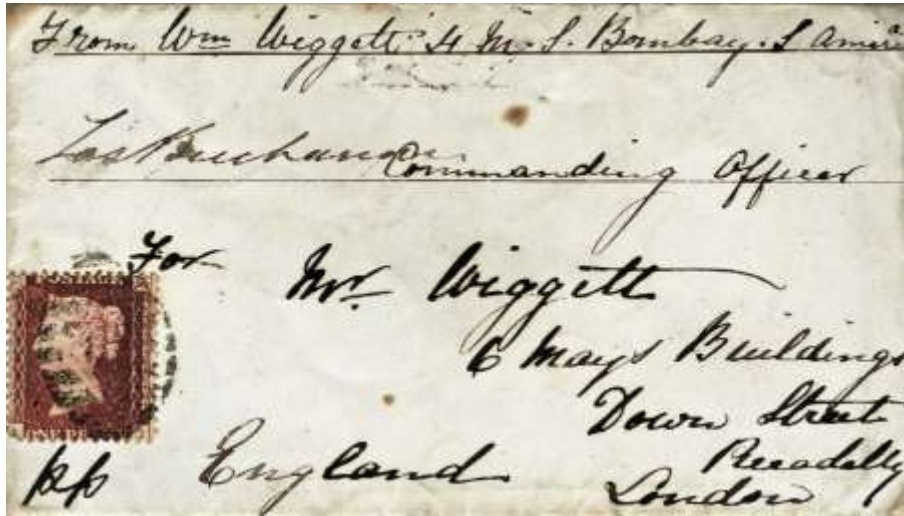 From Wm Wiggett H.M.S. Bombay. S Amira
Buchanan Commanding Officer
For Mr. Wiggett
6 Mays Buildings
Down Street
Piccadilly
London
England
pp